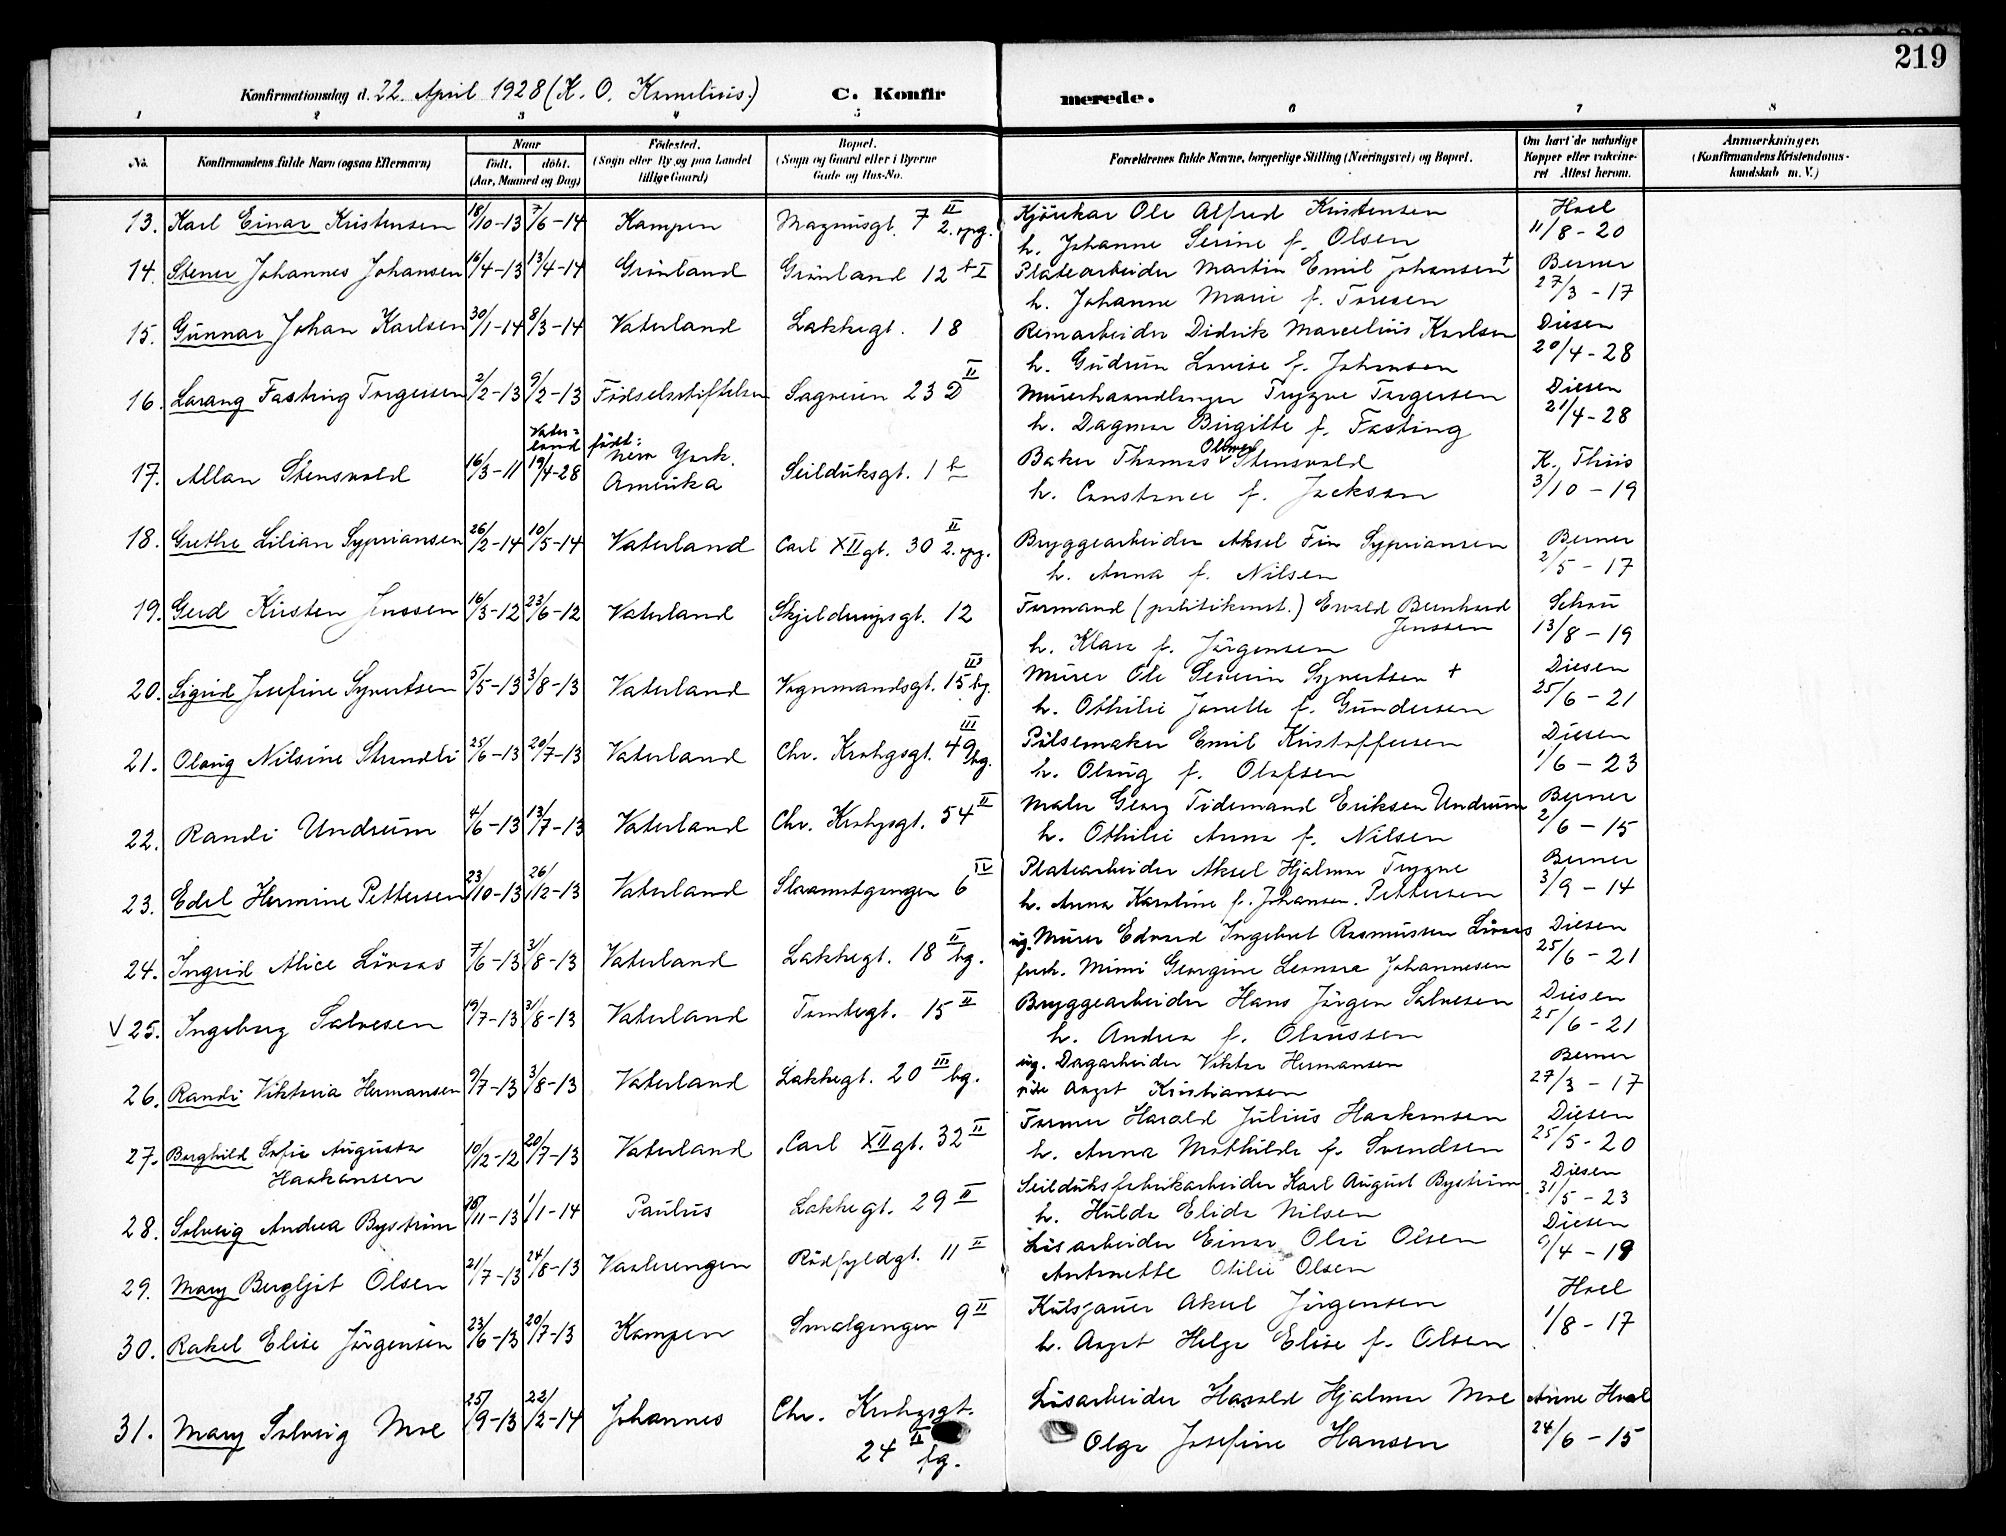 219
Konfirmationsdag d. 22. April 1928 (K. O. Kornelius.) C. Konfirmerede.
1 2 3 4 5 6 7 8
No.
Konfirmandens fulde Navn (ogsaa Efternavn)
Naar
født. døbt.
(Aar, Maaned og Dag)
Fødested.
(Sogn eller By og paa Landet
tillige Gaard)
Bopæl.
(Sogn og Gaard eller i Byerne
Gade og Hus-No.
Forældrenes fulde Navne, borgerlige Stilling (Næringsvei) og Bopæl.
Om havt de naturlige
Kopper eller vakcine-
ret Attest herom.
Anmærkninger.
(Konfirmandens Kristendoms-
kundskab m. V.)
13. Karl Einar Kristensen 18/10-13 7/6-14 Kampen Magnusgt. 7 II 2. opg. Kjørekar Ole Alfred Kristensen Hoel
h. Johanne Serine f. Olsen 11/8-20
14. Stener Johannes Johansen 16/4-13 13/4-14 Grønland Grønland 12 b I Platearbeider Martin Emil Johansen + Berner
h. Johanne Marie f. Toresen 27/3-17
15. Gunnar Johan Karlsen 30/1-14 8/3-14 Vaterland Lakkegt. 18 Remarbeider Didrik Marcelius Karlsen Diesen
h. Gudrun Lovise f. Johansen 20/4-28
16. Lorang Fasting Torgersen 2/2-13 9/2-13 Fødselsstiftelsen Sagveien 23 D II Murerhaandlanger Trygve Torgersen Diesen
h. Dagmar Birgitte f. Fasting 21/4-28
17. Allan Stensvold 16/3-11 Vater=land 19/4-28 født: New York. Amerika Seilduksgt. 1 b Baker Thomas Olsen Stensvold K. Thiis
h. Constance f. Jackson 3/10-19
18. Grethe Lilian Sypriansen 26/2-14 10/5-14 Vaterland Carl XII gt. 30 II 2. opg. Bryggearbeider Aksel Fin Sypriansen Berner
h. Anna f. Nilsen 2/5-17
19. Gerd Kirsten Jenssen 16/3-12 23/6-12 Vaterland Skjeldrupsgt. 12 Formand (politikonst.) Ewald Bernhard Jenssen Schou
h. Klara f. Jørgensen 13/8-19
20. Sigrid Josefine Syvertsen 5/5-13 3/8-13 Vaterland Vognmandsgt. 15 III bg. Murer Ole Severin Syvertsen + Diesen
h. Othilie Janette f. Gundersen 25/6-21
21. Olaug Nilsine Strandli 25/6-13 20/7-13 Vaterland Chr. Krohgsgt. 49 III bg. Pølsemaker Emil Kristoffersen Diesen
h. Olaug f. Olafsen 1/6-23
22. Randi Undrum 4/6-13 13/7-13 Vaterland Chr. Krohgsgt. 54 II Maler Georg Tidemand Eriksen Undrum Berner
h. Othilie Anna f. Nilsen 2/6-15
23. Edel Hermine Pettersen 23/10-13 26/12-13 Vaterland Staamtgangen 6 IV Platearbeider Aksel Hjalmar Trygve Berner
h. Anna Karoline f. Johansen. Pettersen 3/9-14
24. Ingrid Alice Løvaas 7/6-13 3/8-13 Vaterland Lakkegt. 18 II bg. ug. Murer Edvard Ingebret Rasmussen Løvaas Diesen
frsk. Mimi Georgine Leonora Johannesen 25/6-21
V 25. Ingeborg Salvesen 19/7-13 31/8-13 Vaterland Tomtegt. 15 II Bryggearbeider Hans Jørgen Salvesen Diesen
h. Andrea f. Olaussen 25/6-21
26. Randi Viktoria Hermansen 9/7-13 3/8-13 Vaterland Lakkegt. 20 III bg. ug. Dagarbeider Viktor Hermansen Berner
pike Aagot Kristiansen 27/3-17
27. Borghild Sofie Augusta Haakonsen 10/12-12 20/7-13 Vaterland Carl XII gt. 32 II Former Harald Julius Haakonsen Diesen
h. Anna Mathilde f. Svendsen 25/5-20
28. Solveig Andrea Bystrøm 28/11-13 1/1-14 Paulus Lakkegt. 29 II Seilduksfabrikarbeider Karl August Bystrøm Diesen
h. Hulda Elida Nilsen 31/5-23
29. Mary Bergljot Olsen 21/7-13 24/8-13 Vaalerengen Rødfyldgt. 11 II Løsarbeider Einar Olai Olsen Diesen
Antonette Otilie Olsen 9/4-19
30. Rakel Elise Jørgensen 23/6-13 20/7-13 Kampen Smalgangen 9 II Kulsjauer Aksel Jørgensen Hoel
h. Aagot Helga Elise f. Olsen 1/8-17
31. Mary Solveig Moe 25/9-13 22/2-14 Johannes Chr. Krohgsgt. 24 II bg. Løsarbeider Harald Hjalmar Moe Anne Hval
Olga Josefine Hansen 24/6-15